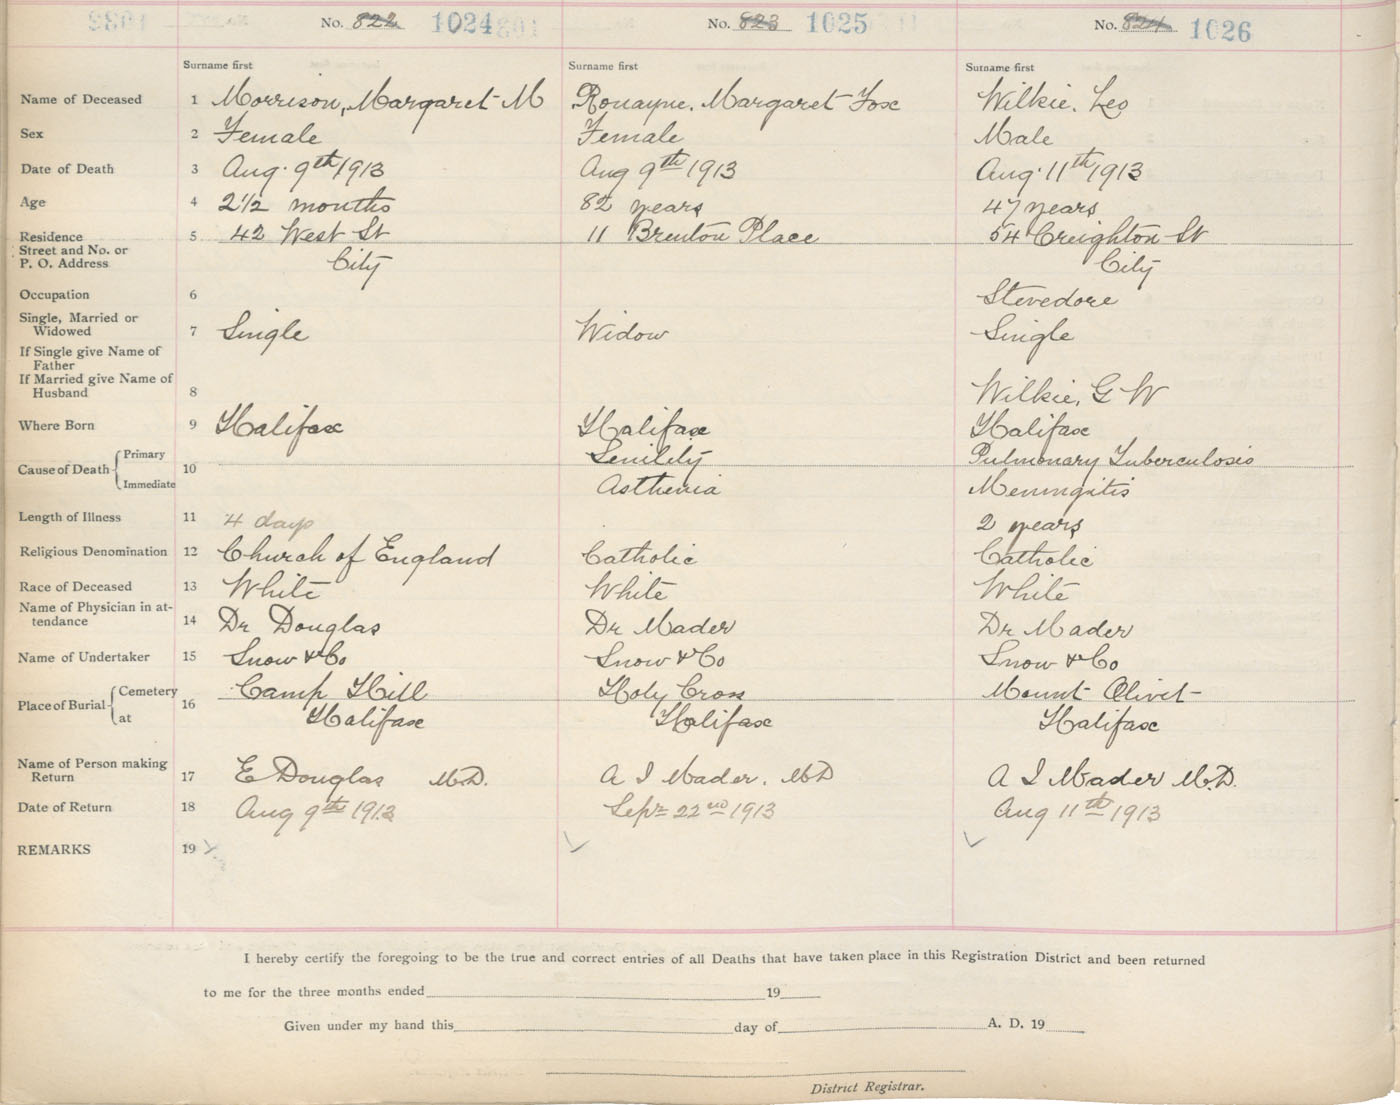 No. 822 1024 No. 823 1025 No. 824 1026
Surname first Surname first Surname first
Name of Deceased 1 Morrison, Margaret M Ronayne, Margaret Fox Wilkie, Leo
Sex 2 Female Female Male
Date of Death 3 Aug. 9th 1913 Aug 9th 1913 Aug. 11th 1913
Age 4 2 1/2 months 82 years 47 years
Residence 5 42 West St 11 Brenton Place 54 Creighton St
Street and No. or
P. O. Address City City
Occupation 6 Stevedore
Single, Married or
Widowed 7 Single Widow Single
If Single give Name of
Father
If Married give Name of
Husband 8 Wilkie, G W
Where Born 9 Halifax Halifax Halifax
Cause of Death Primary 10 Senility Pulmonary Tuberculosis
Immediate Asthenia Meningitis
Length of Illness 11 4 days 2 years
Religious Denomination 12 Church of England Catholic Catholic
Race of Deceased 13 White White White
Name of Physician in at-
tendance 14 Dr Douglas Dr Mader Dr Mader
Name of Undertaker 15 Snow & Co Snow & Co Snow & Co
Place of Burial Cemetery 16 Camp Hill Holy Cross Mount Olivet
at Halifax Halifax Halifax
Name of Person making
Return 17 E Douglas M.D. A I Mader. M D A I Mader M.D.
Date of Return 18 Aug 9th 1913 Sept 22nd 1913 Aug 11th 1913
REMARKS 19
I hereby certify the foregoing to be the true and correct entries of all Deaths that have taken place in this Registration District and been returned
to me for the three months ended 19
Given under my hand this day of A. D. 19
District Registrar.